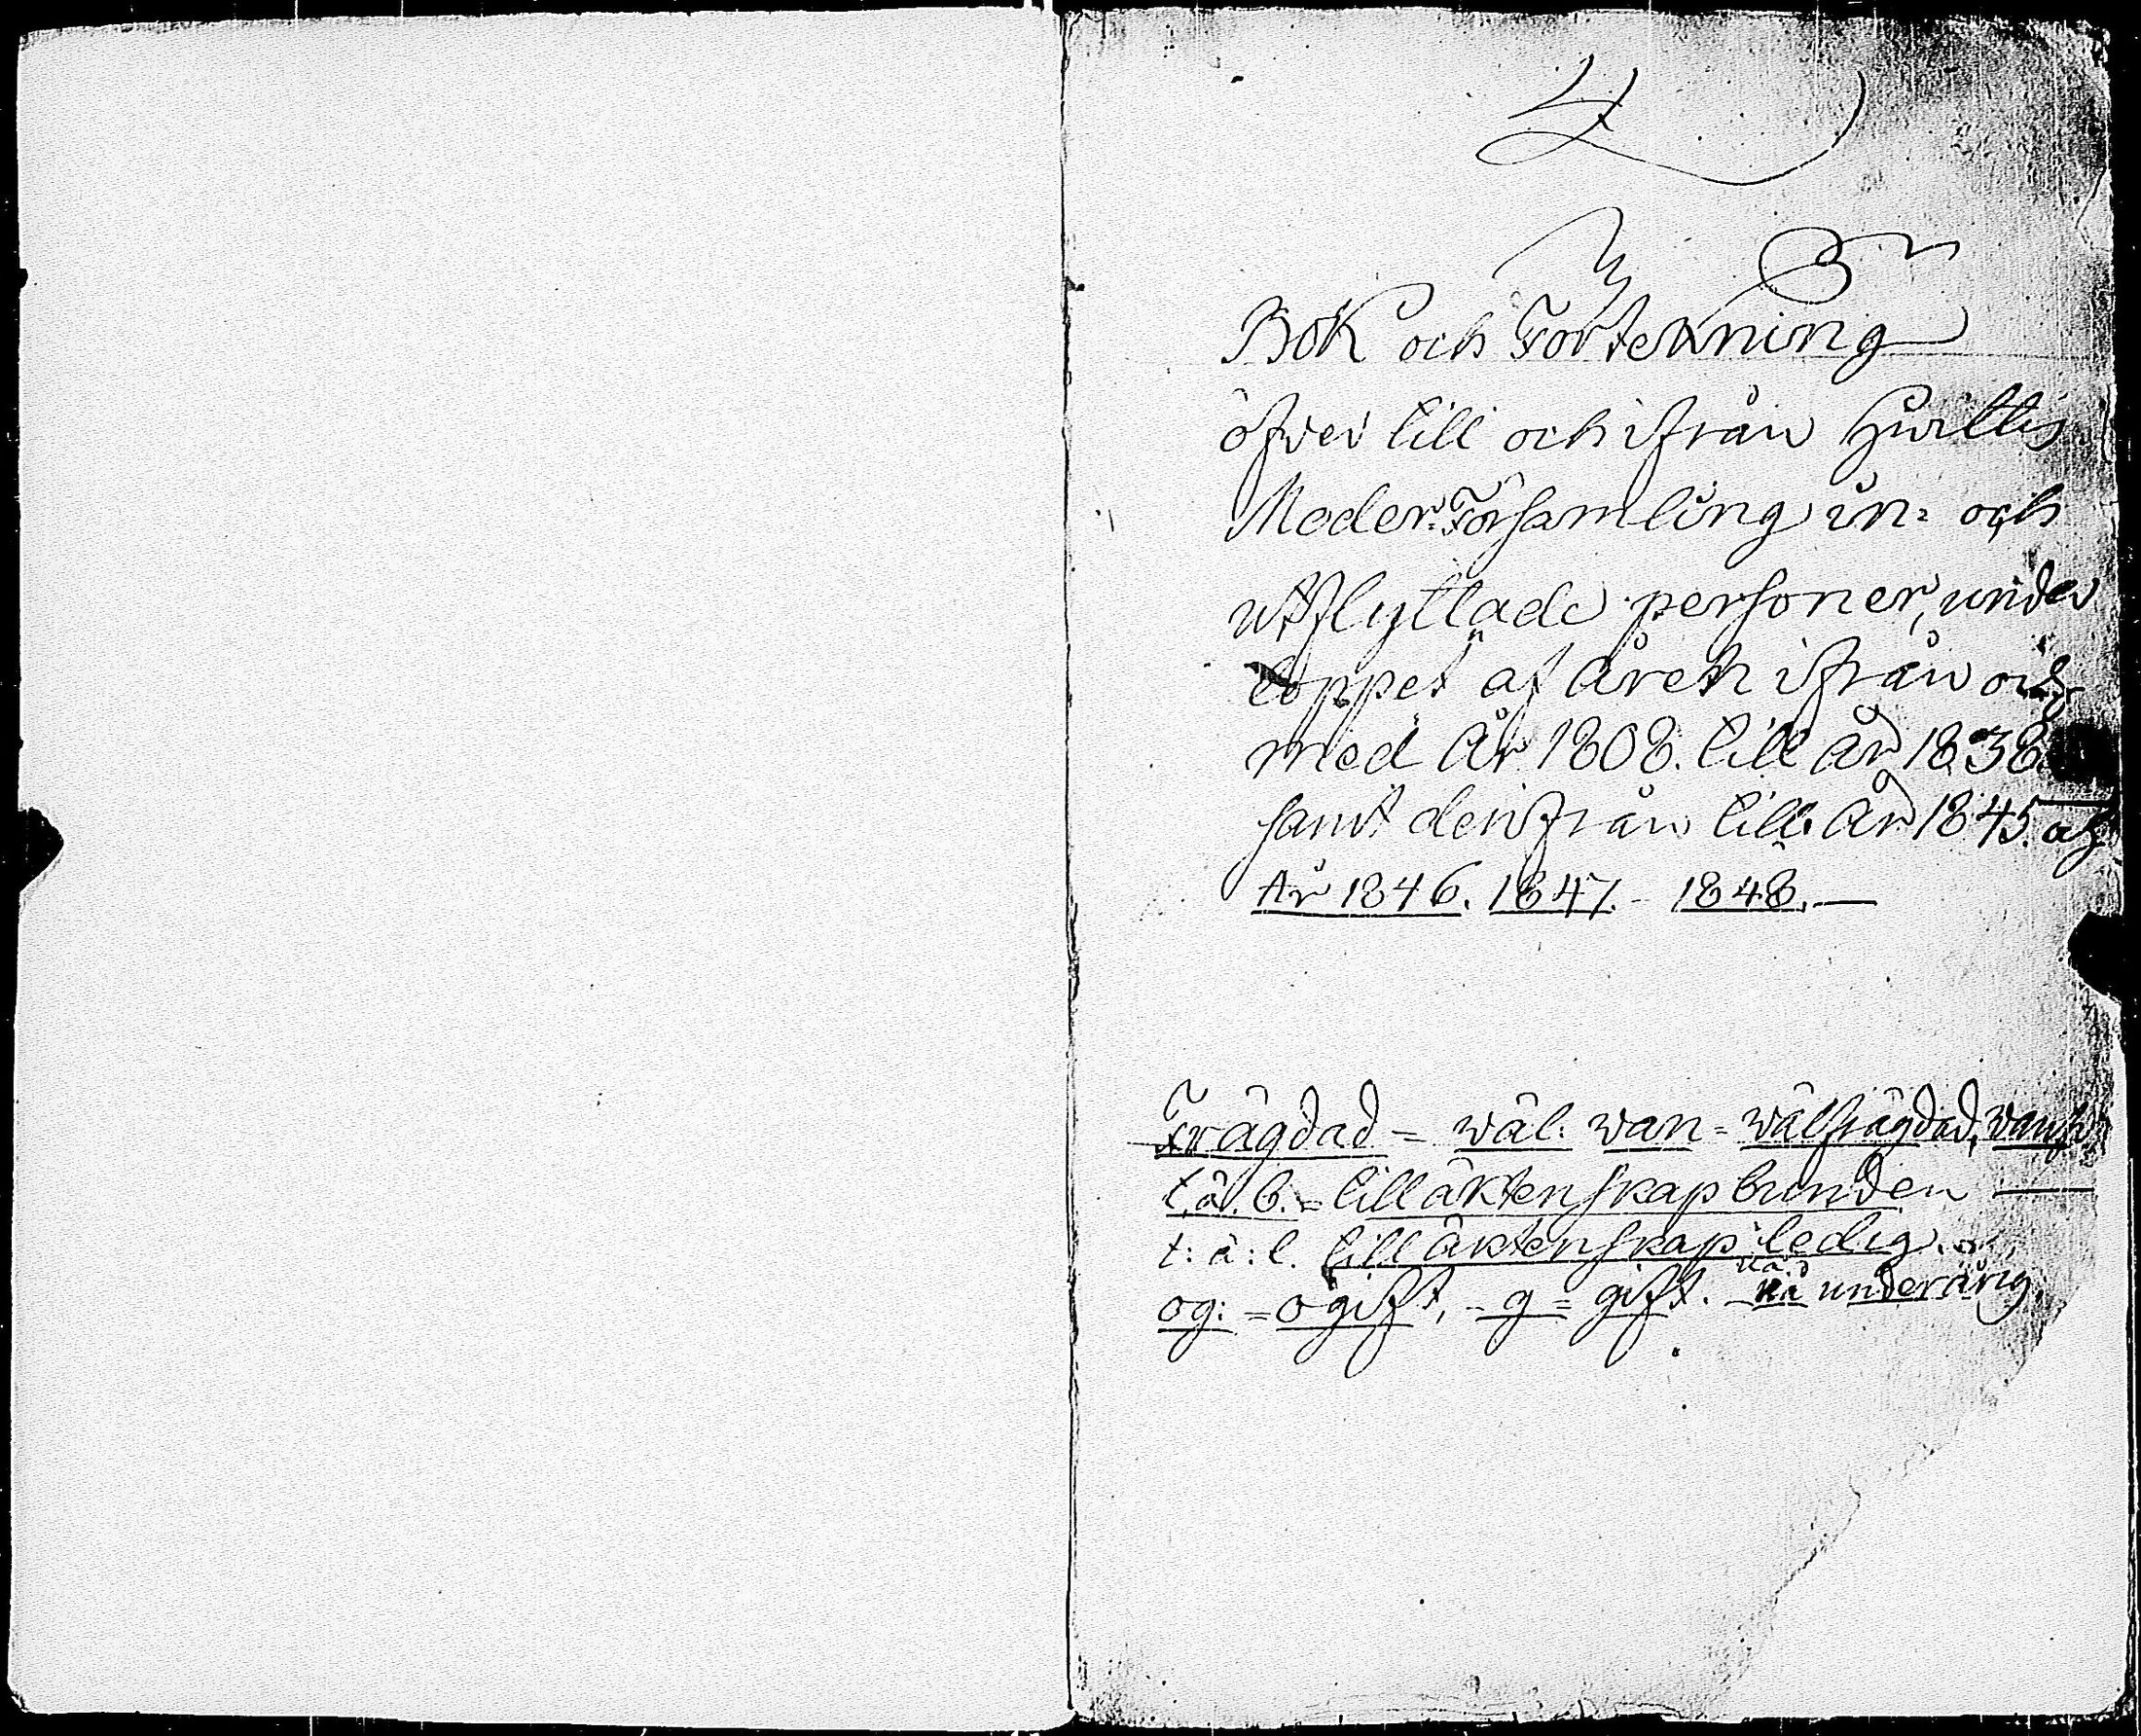 Bok och Förtekning
öfver till och ifrån Hvittis
Moder-Församling in- och
utflyttade personer, under
loppet af åren ifrån och
med År 1808. till år 1838
samt derifrån till År 1845.
År 1846. 1847. - 1848. —
Frägdad = wäl. wan = wälfrägdad,
t. ä. b. = till äktenskap bunden —
t: ä: l. till äktenskap ledig.
og: = ogift, - g = gift. uå underårig.